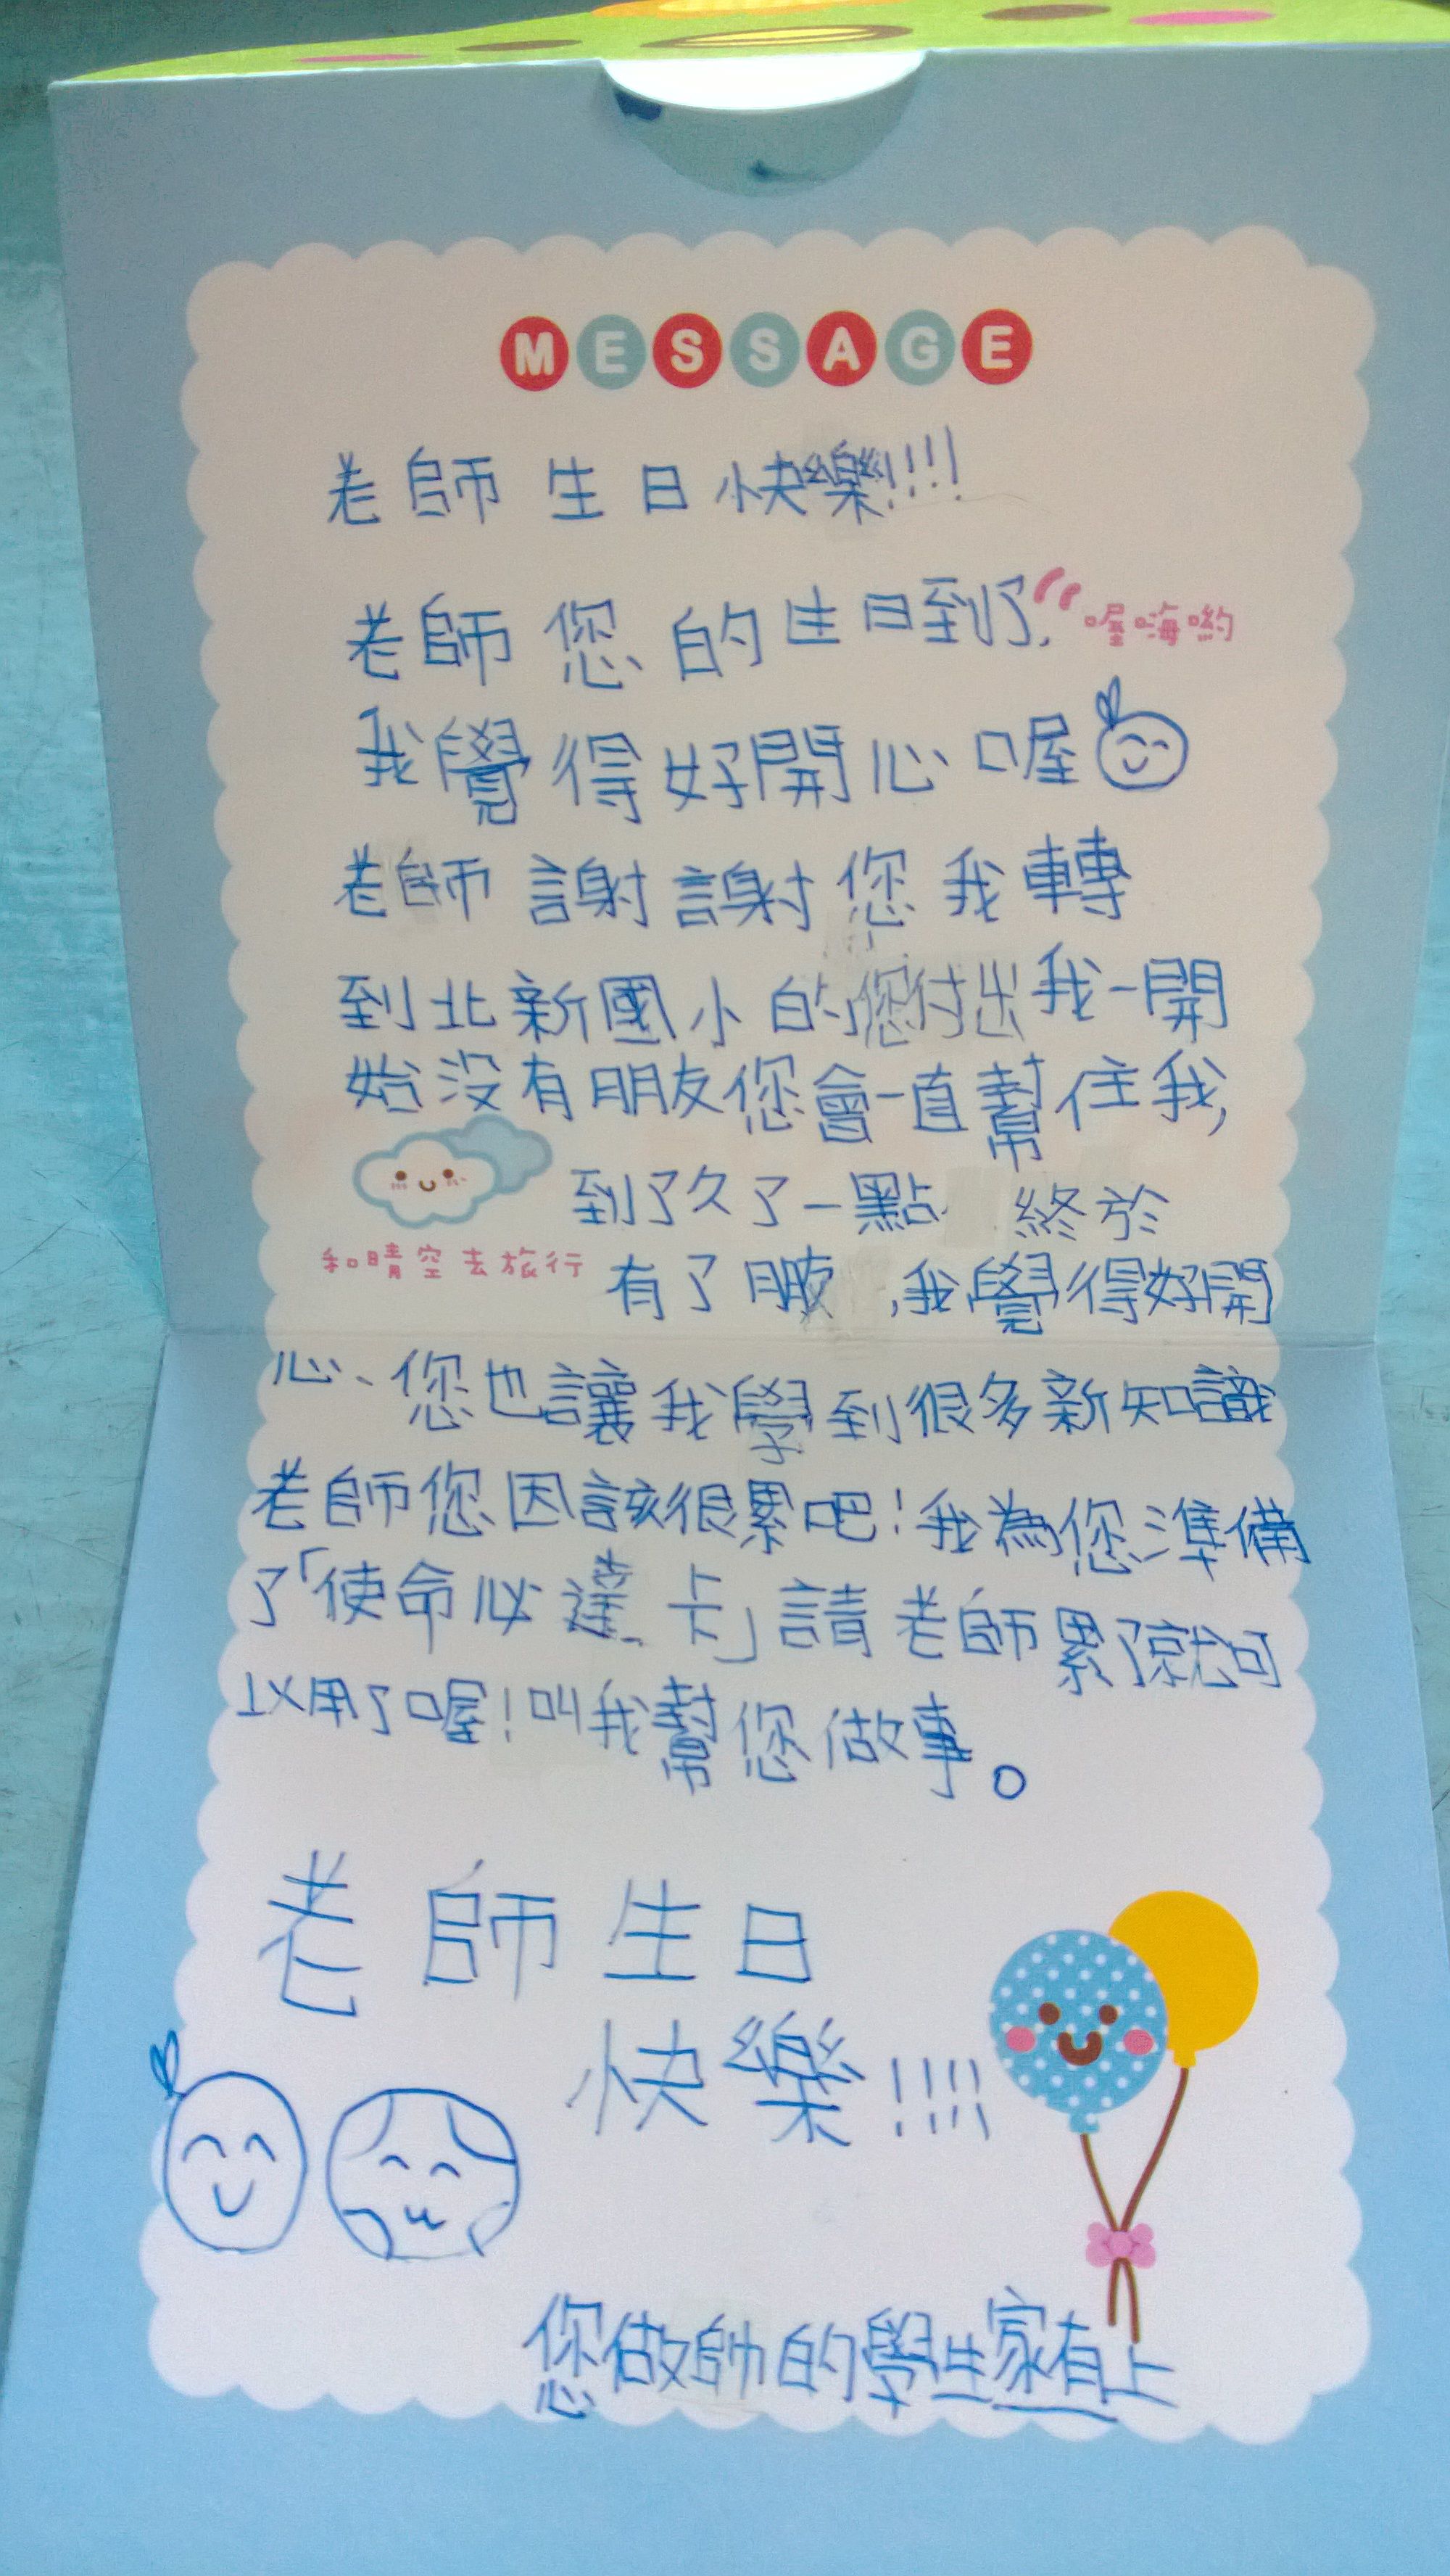 MESSAGE
老師生日快樂!!!!
老師您的生日到了,
喔嗨喲
我覺得好開心喔
老師謝謝您我轉
到北新國小的您付出我一開
始沒有朋友您會一直幫住我,
到了久了一點 終於
和晴空去旅行
有了朋友,我覺得好開
心、您也讓我學到很多新知識
老師您因該很累吧!我為您準備
了「使命必達卡」請老師累了就可
以用了喔!叫我幫您做事。
老師生日
快樂!!!!
您做帥的學生家有上